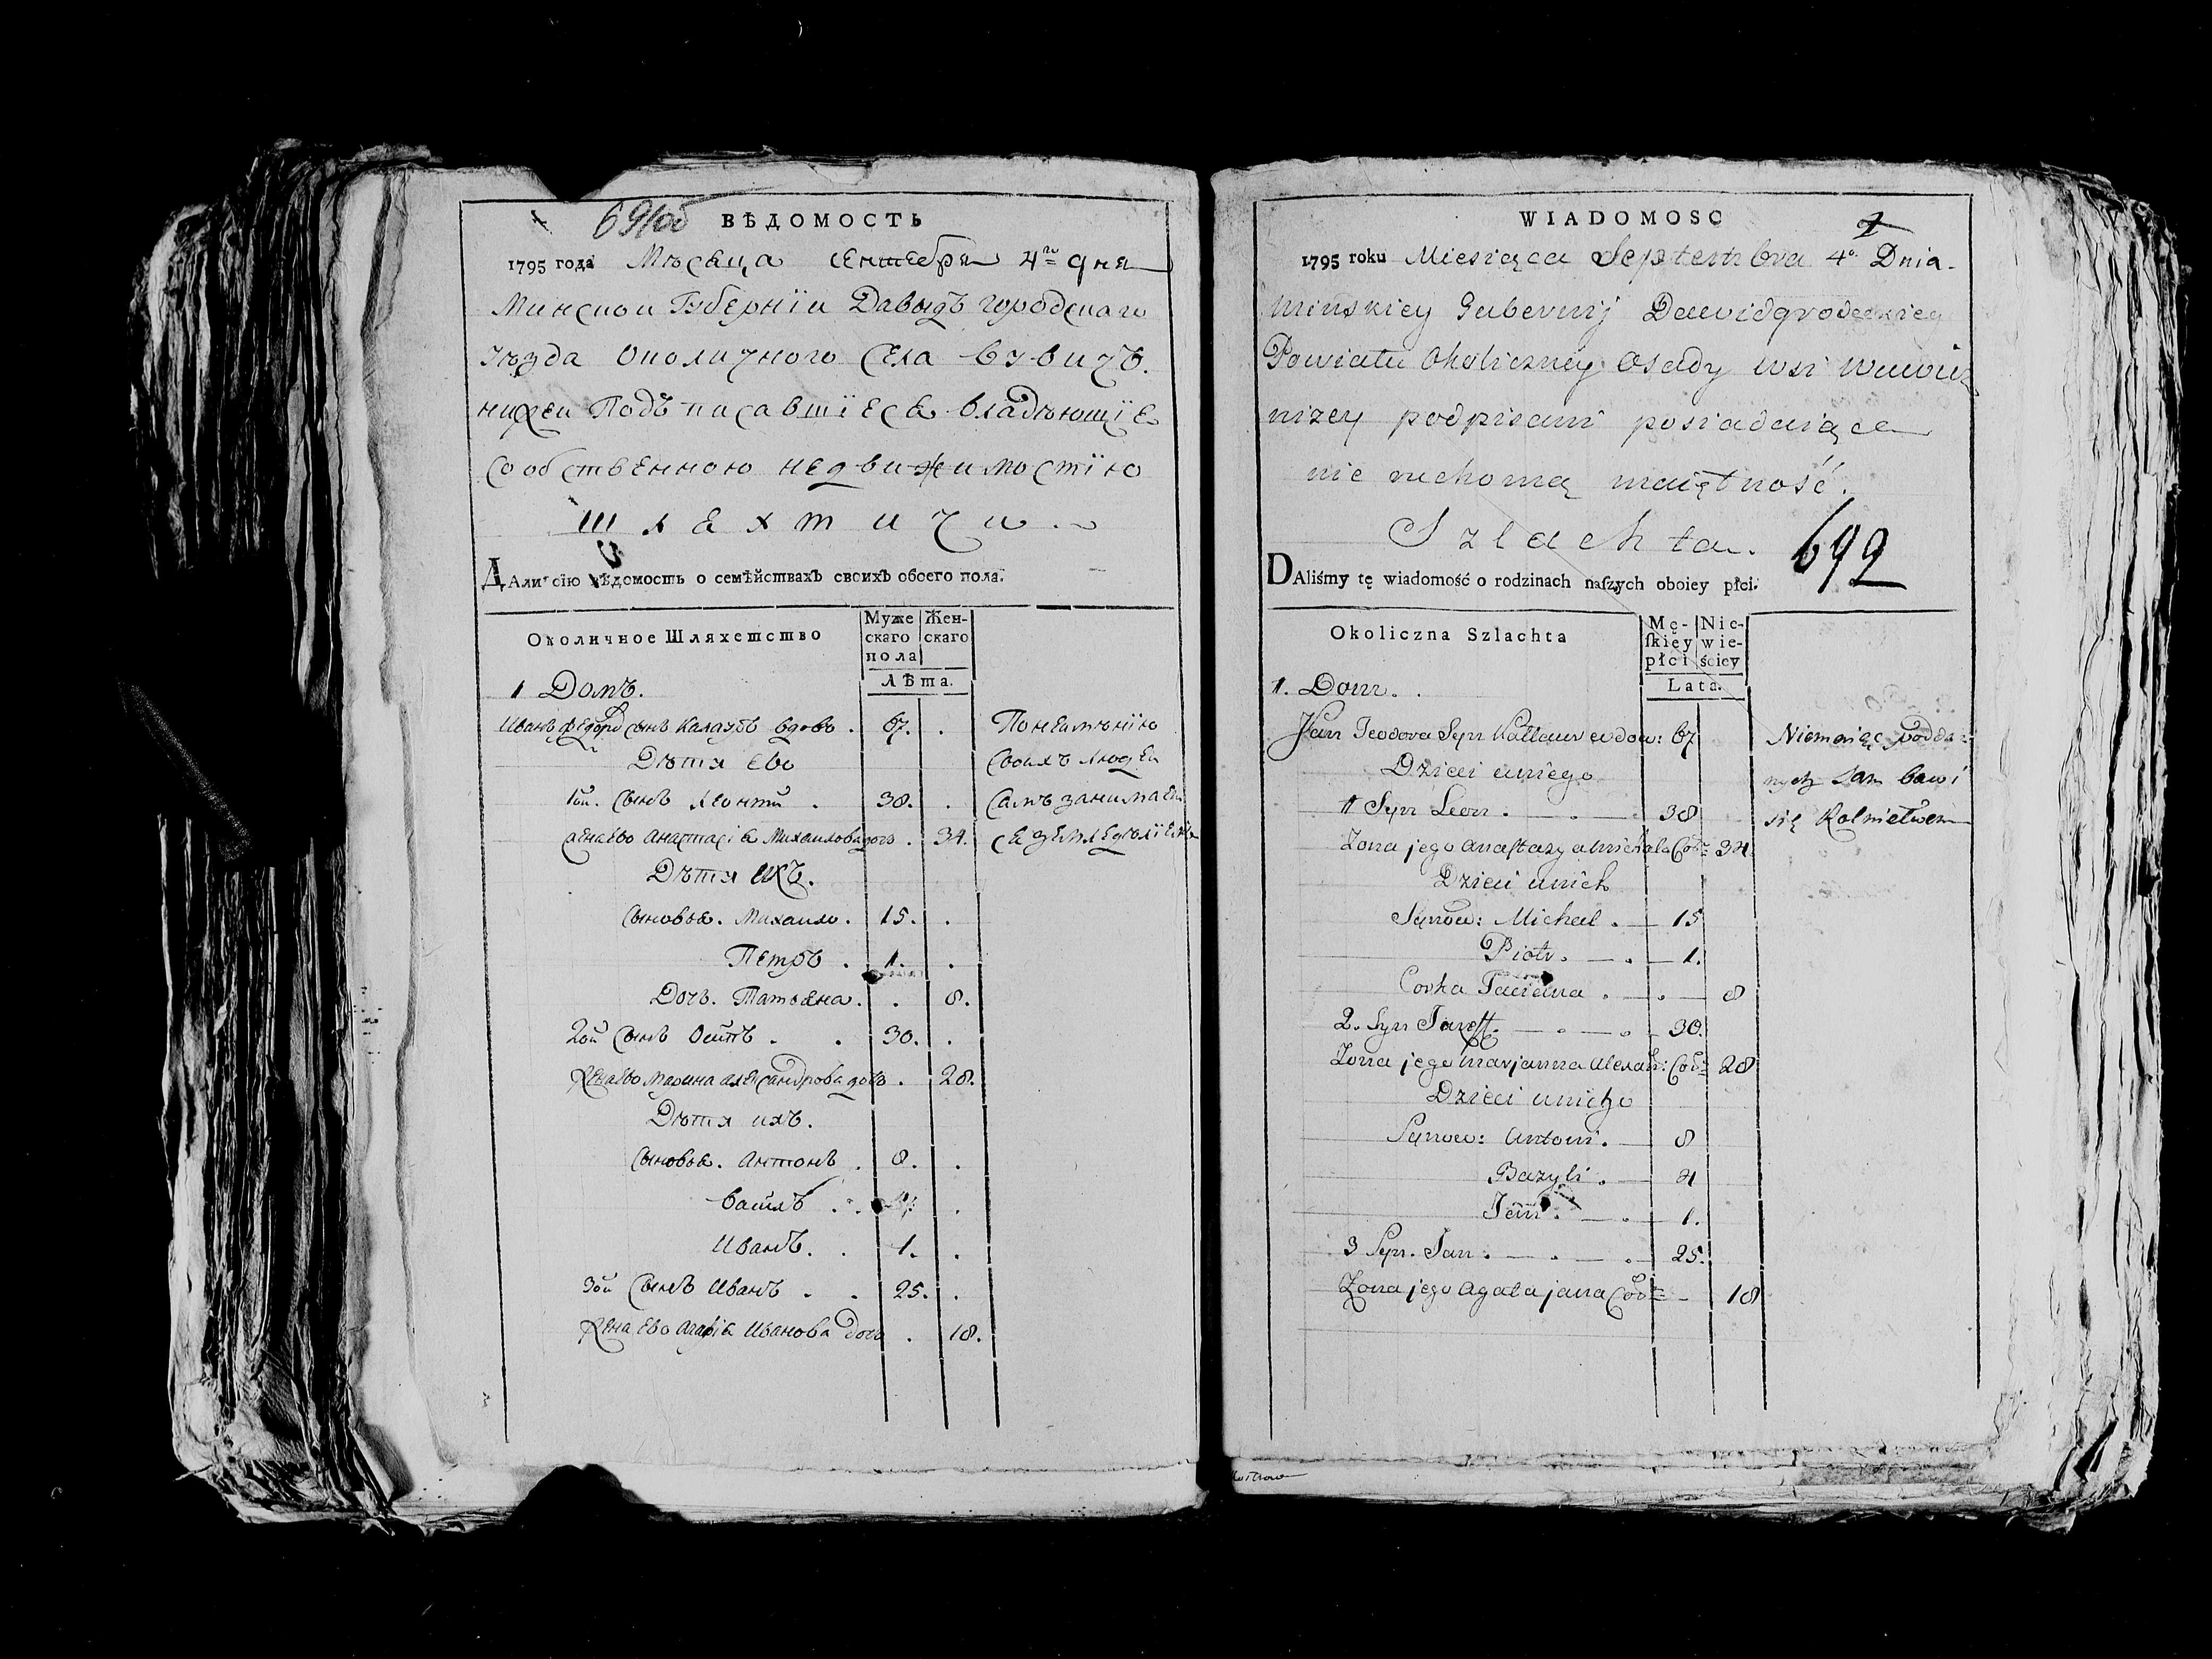 691об
ВѢДОМОСТЬ
1795 года Мѣсяца сентебря 4го дня
Минскои Губернїи Давыдъ городскаго
уѣзда околичного села вувичъ.
нижеи подъ писавшїеся владѣющїе
собственною недвижимостїю
шляхтичи.
ДАли сїю вѣдомость о семѣйствахъ своихъ обоего пола.
Околичное Шляхетство
Муже скаго пола
Жен- скаго
Лѣта.
1 Домъ.
Иванъ Федоро сынъ Калаузъ вдовъ . 67. .
По неимѣнїю
Дѣтя ево
своихъ людеи
1ой. сынъ Леонтiй . 38. .
самъ занимает
жена ево Анастасiя Михаилова дочь . 34.
ся земледѣлïем
Дѣтя ихъ.
сыновья. Михаило. 15. .
Петръ . 1. .
Дочь. Татьяна. . 8.
2ой сынъ Осипъ . . 30. .
жена ево Марина александрова дочь . 28.
Дѣтя ихъ.
сыновья. Антонъ . 8. .
Василъ . .
Иванъ. . 1. .
3ой сынъ Иванъ . . 25. .
жена ево Агафiя Иванова дочь . 18.
WIADOMOSC
1795 roku Miesiąca Septembra 4o Dnia
Minskiey Gubernij Dawidgrodeckiey
Powiatu Okoliczney Osady wsi Wuwicz
nizey podpisani posiadaiące
nie ruchomą maiętność.
Szlachta.
692
DAliśmy tę wiadomość o rodzinach naszych oboiey płci.
Okoliczna Szlachta
Mę- skiey płci
Nie- wie- ściey
Lata.
1. Dom.
Jan Teodora Syn Kallaur wdow: 67
Niemaiąc podda-
Dzieci uniego
nych sam bawi
1 Syn Leon. 38
się Rolnictwem
Zona jego Anastazya Michala Cor: 34
Dzieci unich
Synow: Michal . 15
Piotr. 1.
Corka Taciana . 8
2. Syn Jozeff. 30.
Zona jego Marjanna Alexan: Cor: 28
Dzieci unich
Synow: Antoni. 8
Bazyli. 4
Jan. 1.
3 Syn. Jan. 25.
Zona jego Agata jana Cor: 18